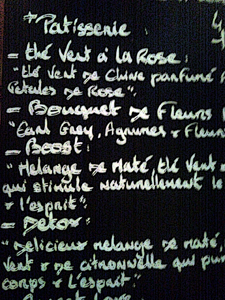 *Patisserie :
- thé Vert à la Rose:
"thé Vert de Chine parfumé
Petales de Rose".
- Bouquet de Fleurs
"Earl Grey, Agrumes & Fleurs
- Boost:
"Mélange de Maté, thé Vert
qui stimule naturellement le
& l'esprit".
- Detox:
"Délicieux mélange de maté,
Vert & de citronnelle qui
corps & l'Esprit".